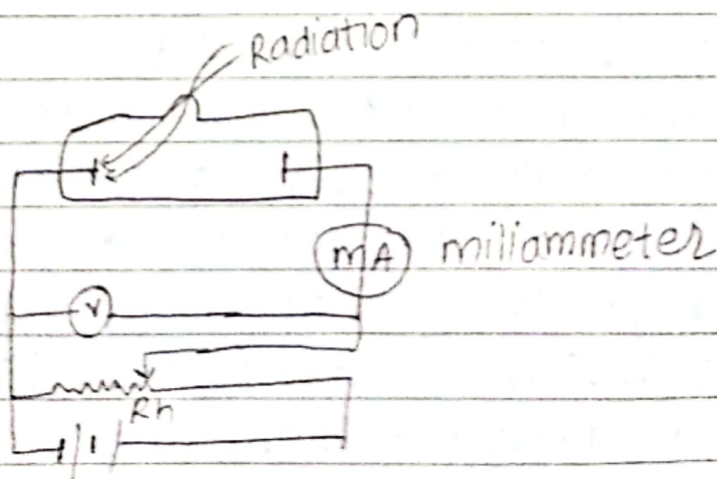 Radiation
mA miliammeter
V
Rh